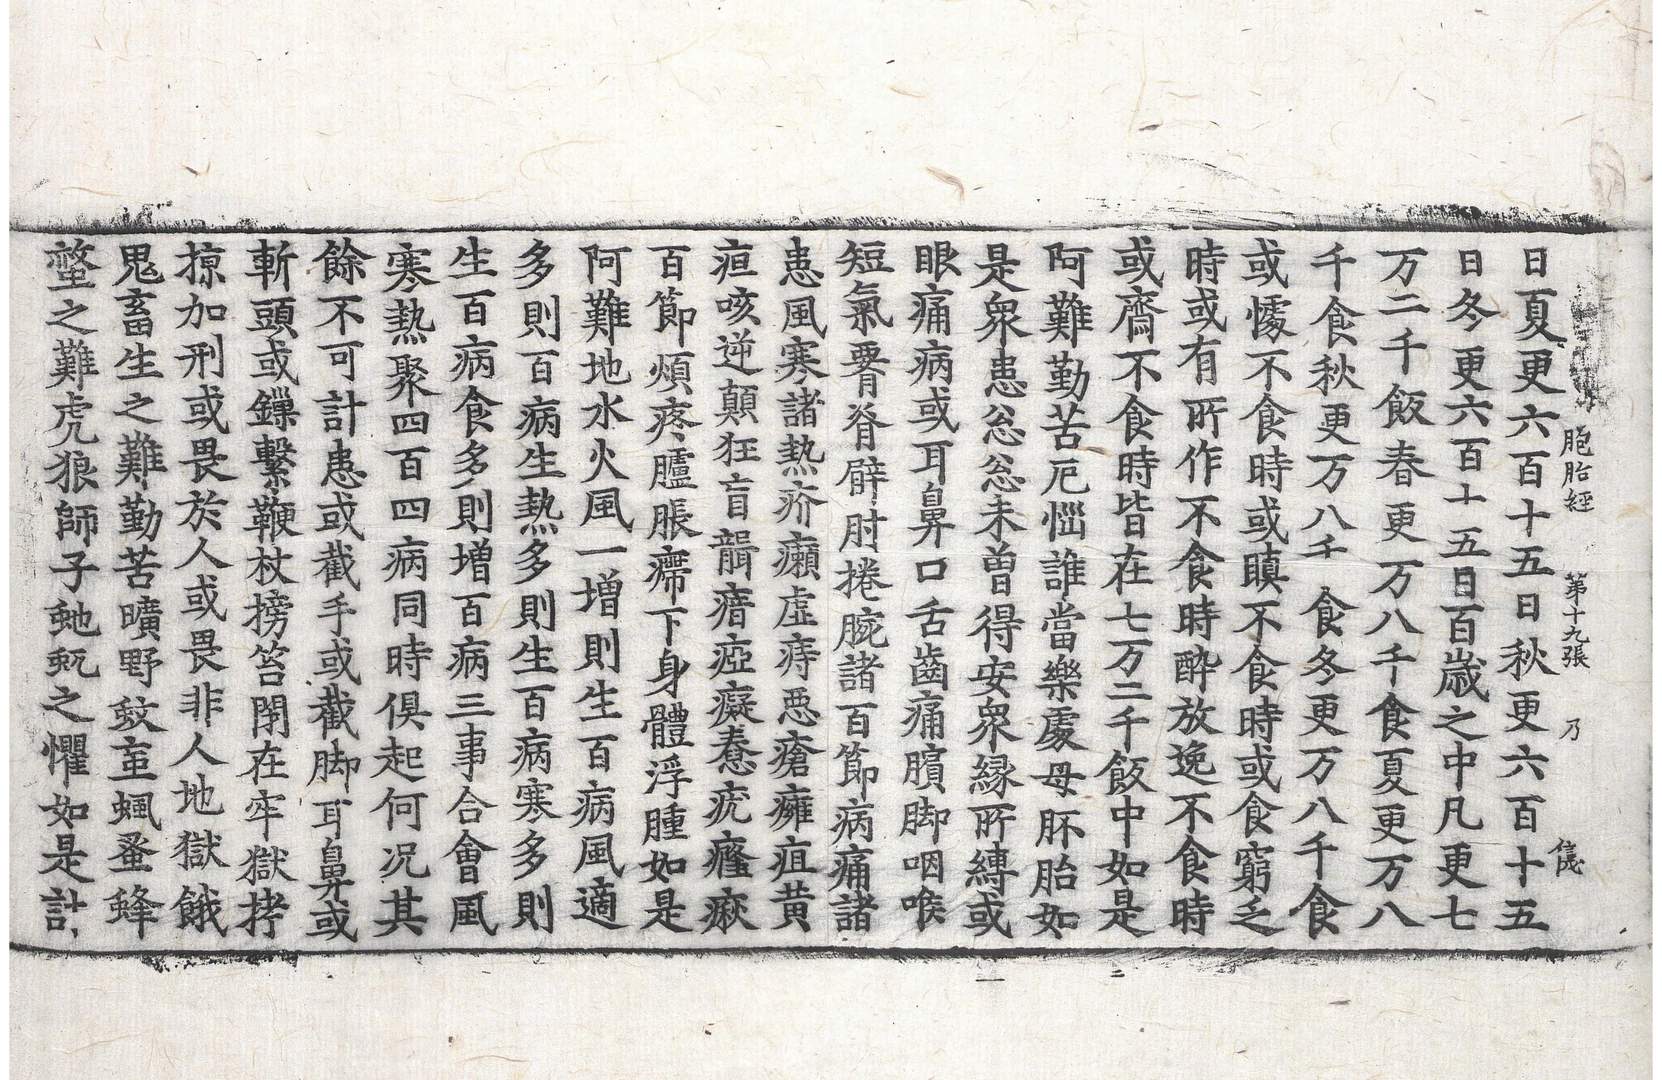 胞胎經 第十九張 乃 儀
日夏更六百十五日秋更六百十五
日冬更六百十五日百歲之中凡更七
万二千飯春更万八千食夏更万八
千食秋更万八千食冬更万八千食
或懅不食時或瞋不食時或食窮乏
時或有所作不食時醉放逸不食時
或齋不食時皆在七万二千飯中如是
阿難勤苦厄惱誰當樂處母胚胎如
是衆患忩忩未曽得安衆縁所縛或
眼痛病或耳鼻口舌齒痛臏脚咽喉
短氣要脊臂肘捲腕諸百節病痛諸
患風寒諸熱疥癩虛痔惡瘡癰疽黄
疸咳逆顛狂盲聾瘖瘂癡憃疣癊瘶
百節煩疼臚脹㿃下身體浮腫如是
阿難地水火風一增則生百病風適
多則百病生熱多則生百病寒多則
生百病食多則增百病三事合會風
寒熱聚四百四病同時俱起何况其
餘不可計患或截手或截脚耳鼻或
斬頭或鏁繫鞭杖搒笞閉在牢獄拷
掠加刑或畏於人或畏非人地獄餓
鬼畜生之難勤苦曠野蚊䖟蝇蚤蜂
螫之難虎狼師子虵虺之懼如是計